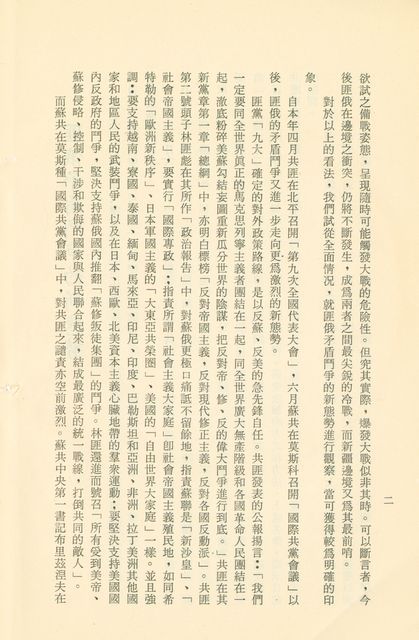 二
欲試之備戰姿態，呈現隨時可能觸發大戰的危險性。但究其實際，爆發大戰似非其時。可以斷言者，今
後匪俄在邊境之衝突，仍將不斷發生，成爲兩者之間最尖銳的冷戰，而新疆邊境又爲其最前哨。
對於以上的看法，我們試從全面情況，就匪俄矛盾鬥爭的新態勢進行觀察，當可獲得較爲明確的印
象。
自本年四月共匪在北平召開「第九次全國代表大會」，六月蘇共在莫斯科召開「國際共黨會議」以
後，匪俄的矛盾鬥爭又進一步走向更爲激烈的新態勢。
匪黨「九大」確定的對外政策路線，是以反蘇、反美的急先鋒自任。共匪發表的公報揚言：「我們
一定要同全世界眞正的馬克思列寧主義者團結在一起，同全世界廣大無產階級和各國革命人民團結在一
起，澈底粉碎美蘇勾結妄圖重新瓜分世界的陰謀，把反對帝、修、反的偉大鬥爭進行到底。」共匪在其
新黨章第一章「總綱」中，亦明白標榜「反對帝國主義，反對現代修正主義，反對各國反動派」。共匪
第二號頭子林匪彪在其所作「政治報告」中，對蘇俄更極口詆毀不留餘地，指責蘇聯是「新沙皇」、「
社會帝國主義」，要實行「國際專政」；指責所謂「社會主義大家庭」卽社會帝國主義殖民地，如同希
特勒的「歐洲新秩序」、日本軍國主義的「大東亞共榮圈」、美國的「自由世界大家庭」一樣。並且強
調：要支持越南、寮國、泰國、緬甸、馬來亞、印尼、印度、巴勒斯坦和亞洲、非洲、拉丁美洲其他國
家和地區人民的武裝鬥爭，以及在日本、西歐、北美資本主義心臟地帶的羣衆運動；要堅決支持美國國
內反政府的鬥爭，堅決支持蘇俄國內推翻「蘇修叛徒集團」的鬥爭。林匪還進而號召「所有受到美帝、
蘇修侵略、控制、干涉和欺侮的國家與人民聯合起來，結成最廣泛的統一戰線，打倒共同的敵人」。
而蘇共在莫斯種「國際共黨會議」中，對共匪之譴責亦空前激烈。蘇共中央第一書記布里茲湼夫在